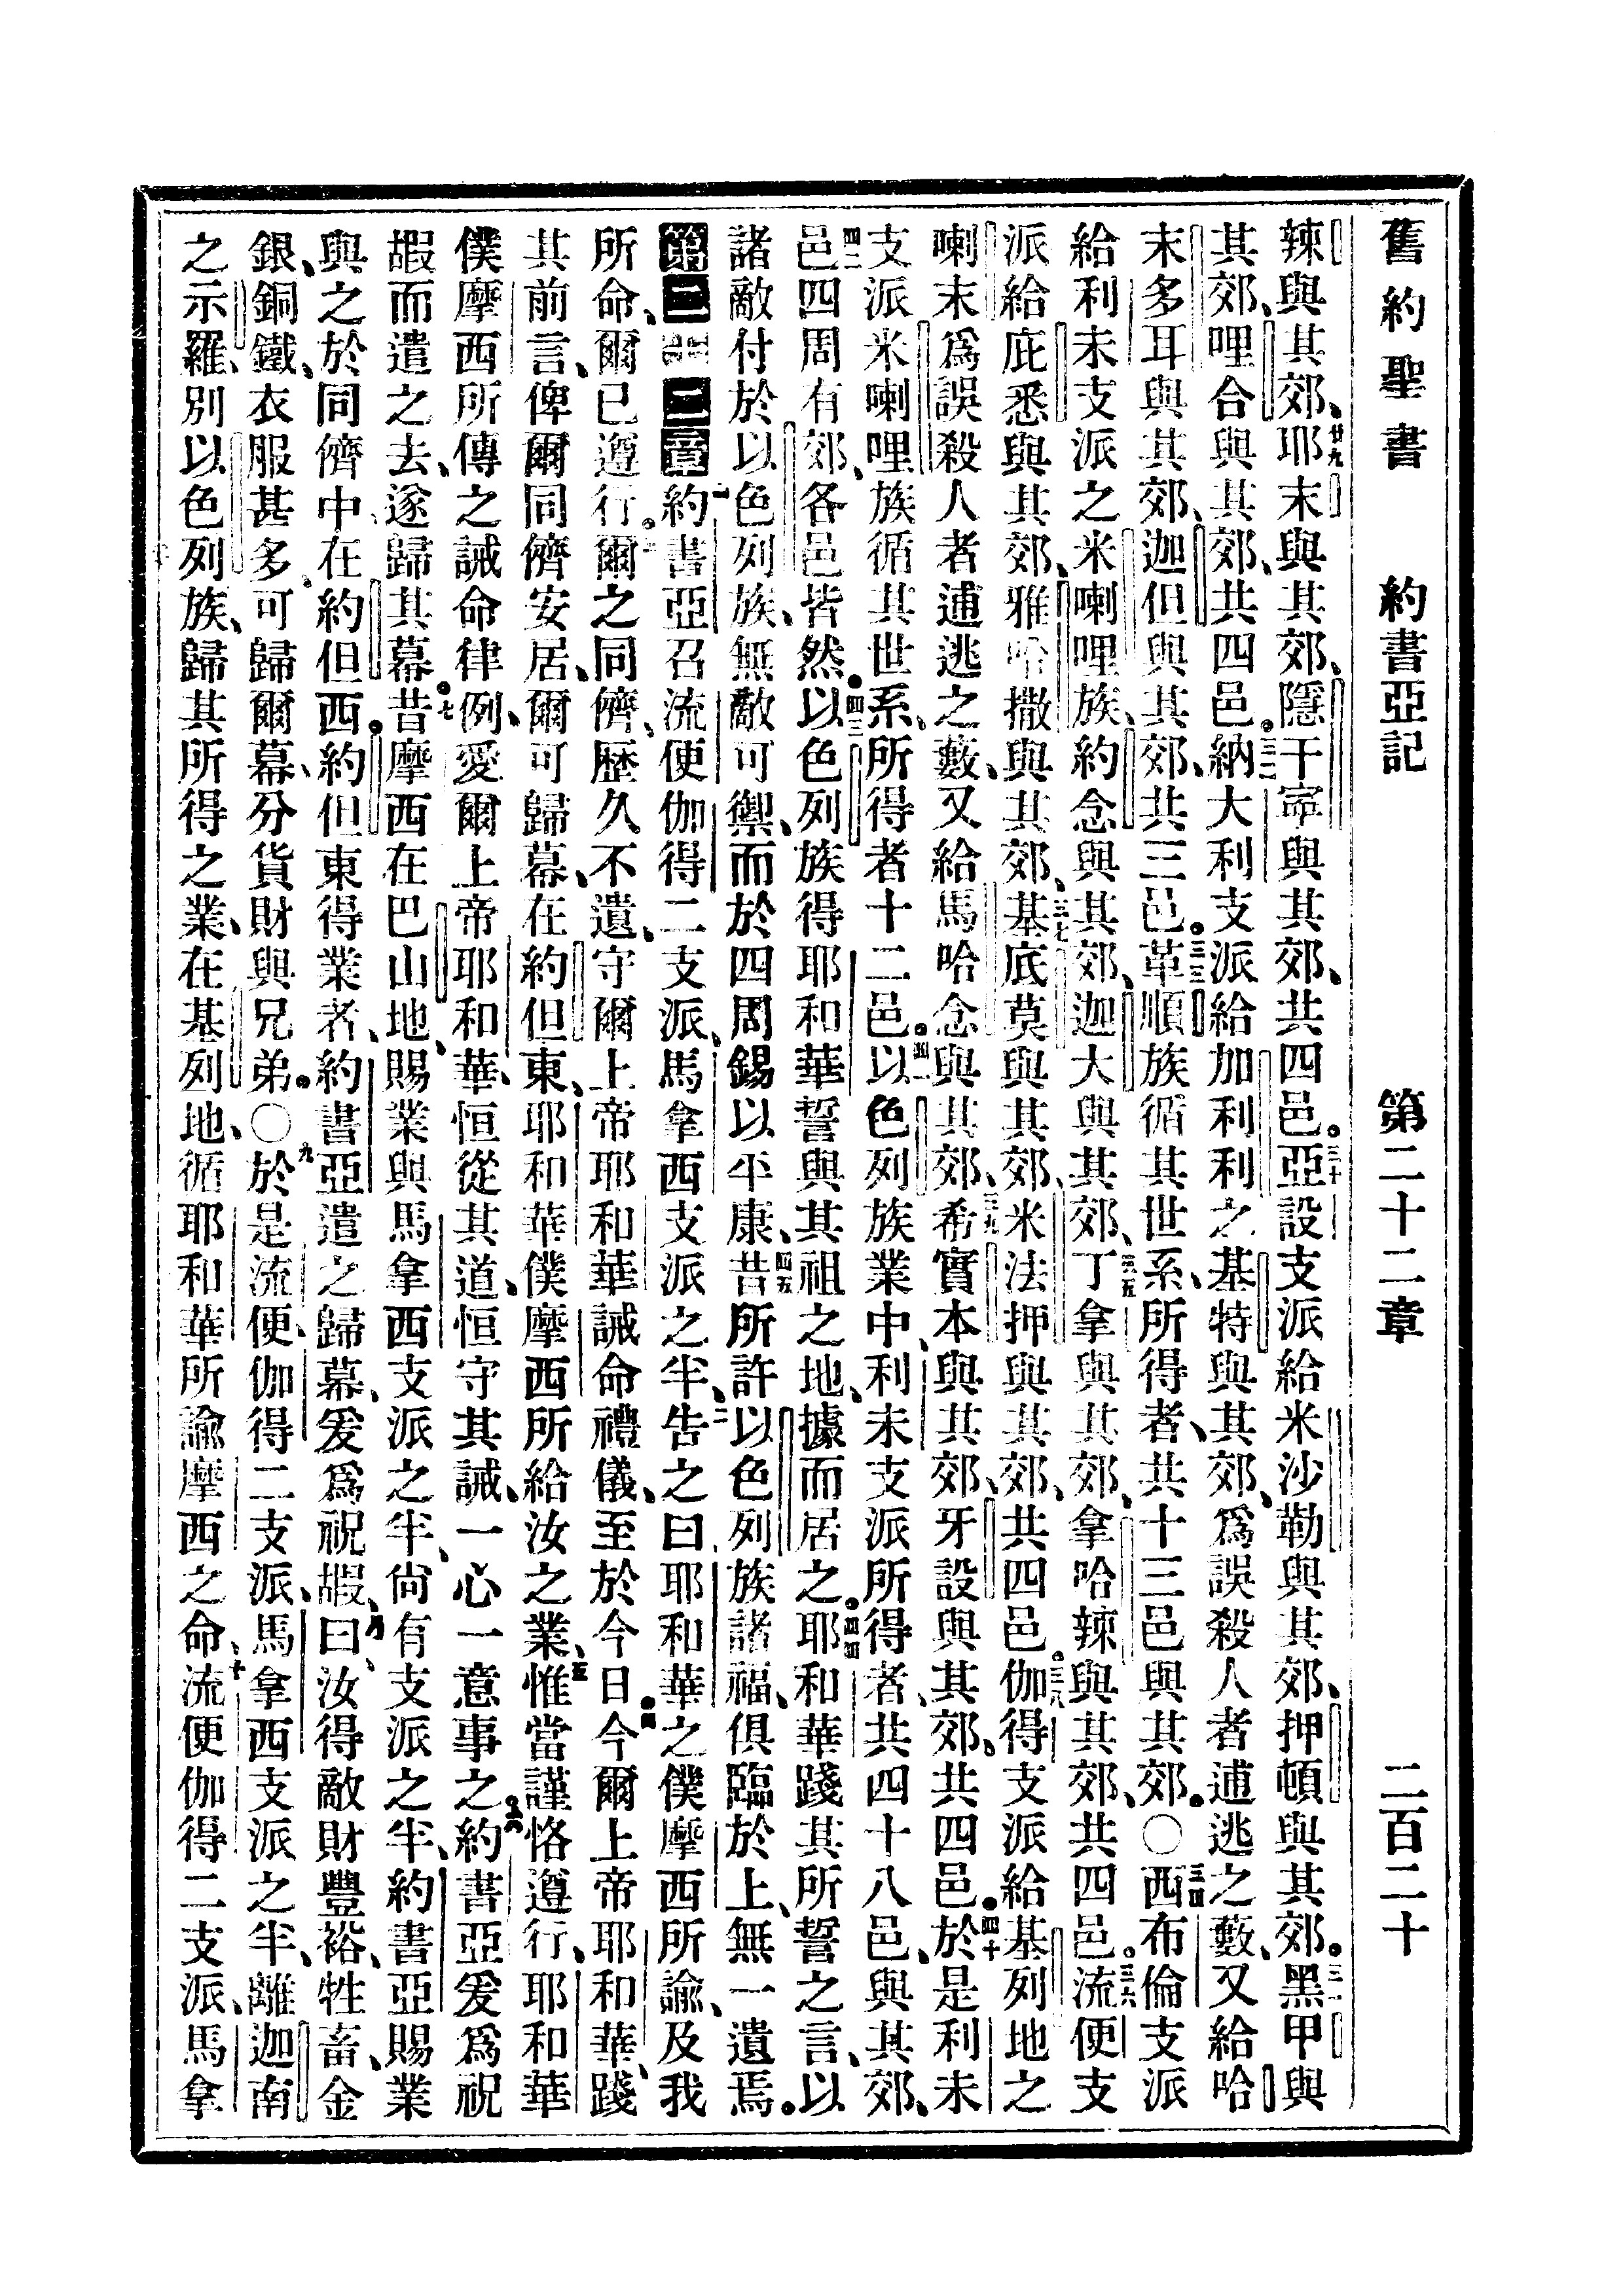 舊約聖書 約書亞記 第二十二章 二百二十
辣與其郊、廿九耶末與其郊、隱干寧與其郊、共四邑。三十亞設支派給米沙勒與其郊、押頓與其郊。三一黑甲與
其郊、哩合與其郊、共四邑。三二納大利支派給加利利之基特與其郊、爲誤殺人者逋逃之藪、又給哈
末多耳與其郊、迦但與其郊、共三邑。三三革順族循其世系、所得者、共十三邑與其郊。〇三四西布倫支派
給利未支派之米喇哩族、約念與其郊、迦大與其郊、三五丁拿與其郊、拿哈辣與其郊、共四邑。三六流便支
派給庇悉與其郊、雅哈撒與其郊、三七基底莫與其郊、米法押與其郊、共四邑。三八伽得支派給基列地之
喇末爲誤殺人者逋逃之藪、又給馬哈念與其郊、三九希實本與其郊、牙設與其郊。共四邑。四十於是利未
支派米喇哩族循其世系、所得者十二邑。四一以色列族業中、利未支派所得者、共四十八邑、與其郊、
四二邑四周有郊、各邑皆然。四三以色列族得耶和華誓與其祖之地、據而居之。四四耶和華踐其所誓之言、以
諸敵付於以色列族、無敵可禦、而於四周錫以平康、四五昔所許以色列族諸福、俱臨於上、無一遺焉。
第二十二章 一約書亞召流便伽得二支派、馬拿西支派之半、二告之曰耶和華之僕摩西所諭、及我
所命、爾已遵行。三爾之同儕、歷久不遺、守爾上帝耶和華誡命禮儀、至於今日。四今爾上帝耶和華、踐
其前言、俾爾同儕安居、爾可歸幕、在約但東、耶和華僕摩西所給汝之業、五惟當謹恪遵行、耶和華
僕摩西所傳之誡命律例、愛爾上帝耶和華、恒從其道、恒守其誡、一心一意事之。六約書亞爰爲祝
嘏而遣之去、遂歸其幕。七昔摩西在巴山地、賜業與馬拿西支派之半、尙有支派之半、約書亞賜業
與之於同儕中、在約但西。約但東得業者、約書亞遣之歸幕、爰爲祝嘏、八曰、汝得敵財豐裕、牲畜、金
銀、銅鐵、衣服甚多、可歸爾幕、分貨財與兄弟。〇九於是流便、伽得二支派、馬拿西支派之半、離迦南
之示羅、別以色列族、歸其所得之業、在基列地、循耶和華所諭摩西之命、十流便伽得二支派、馬拿